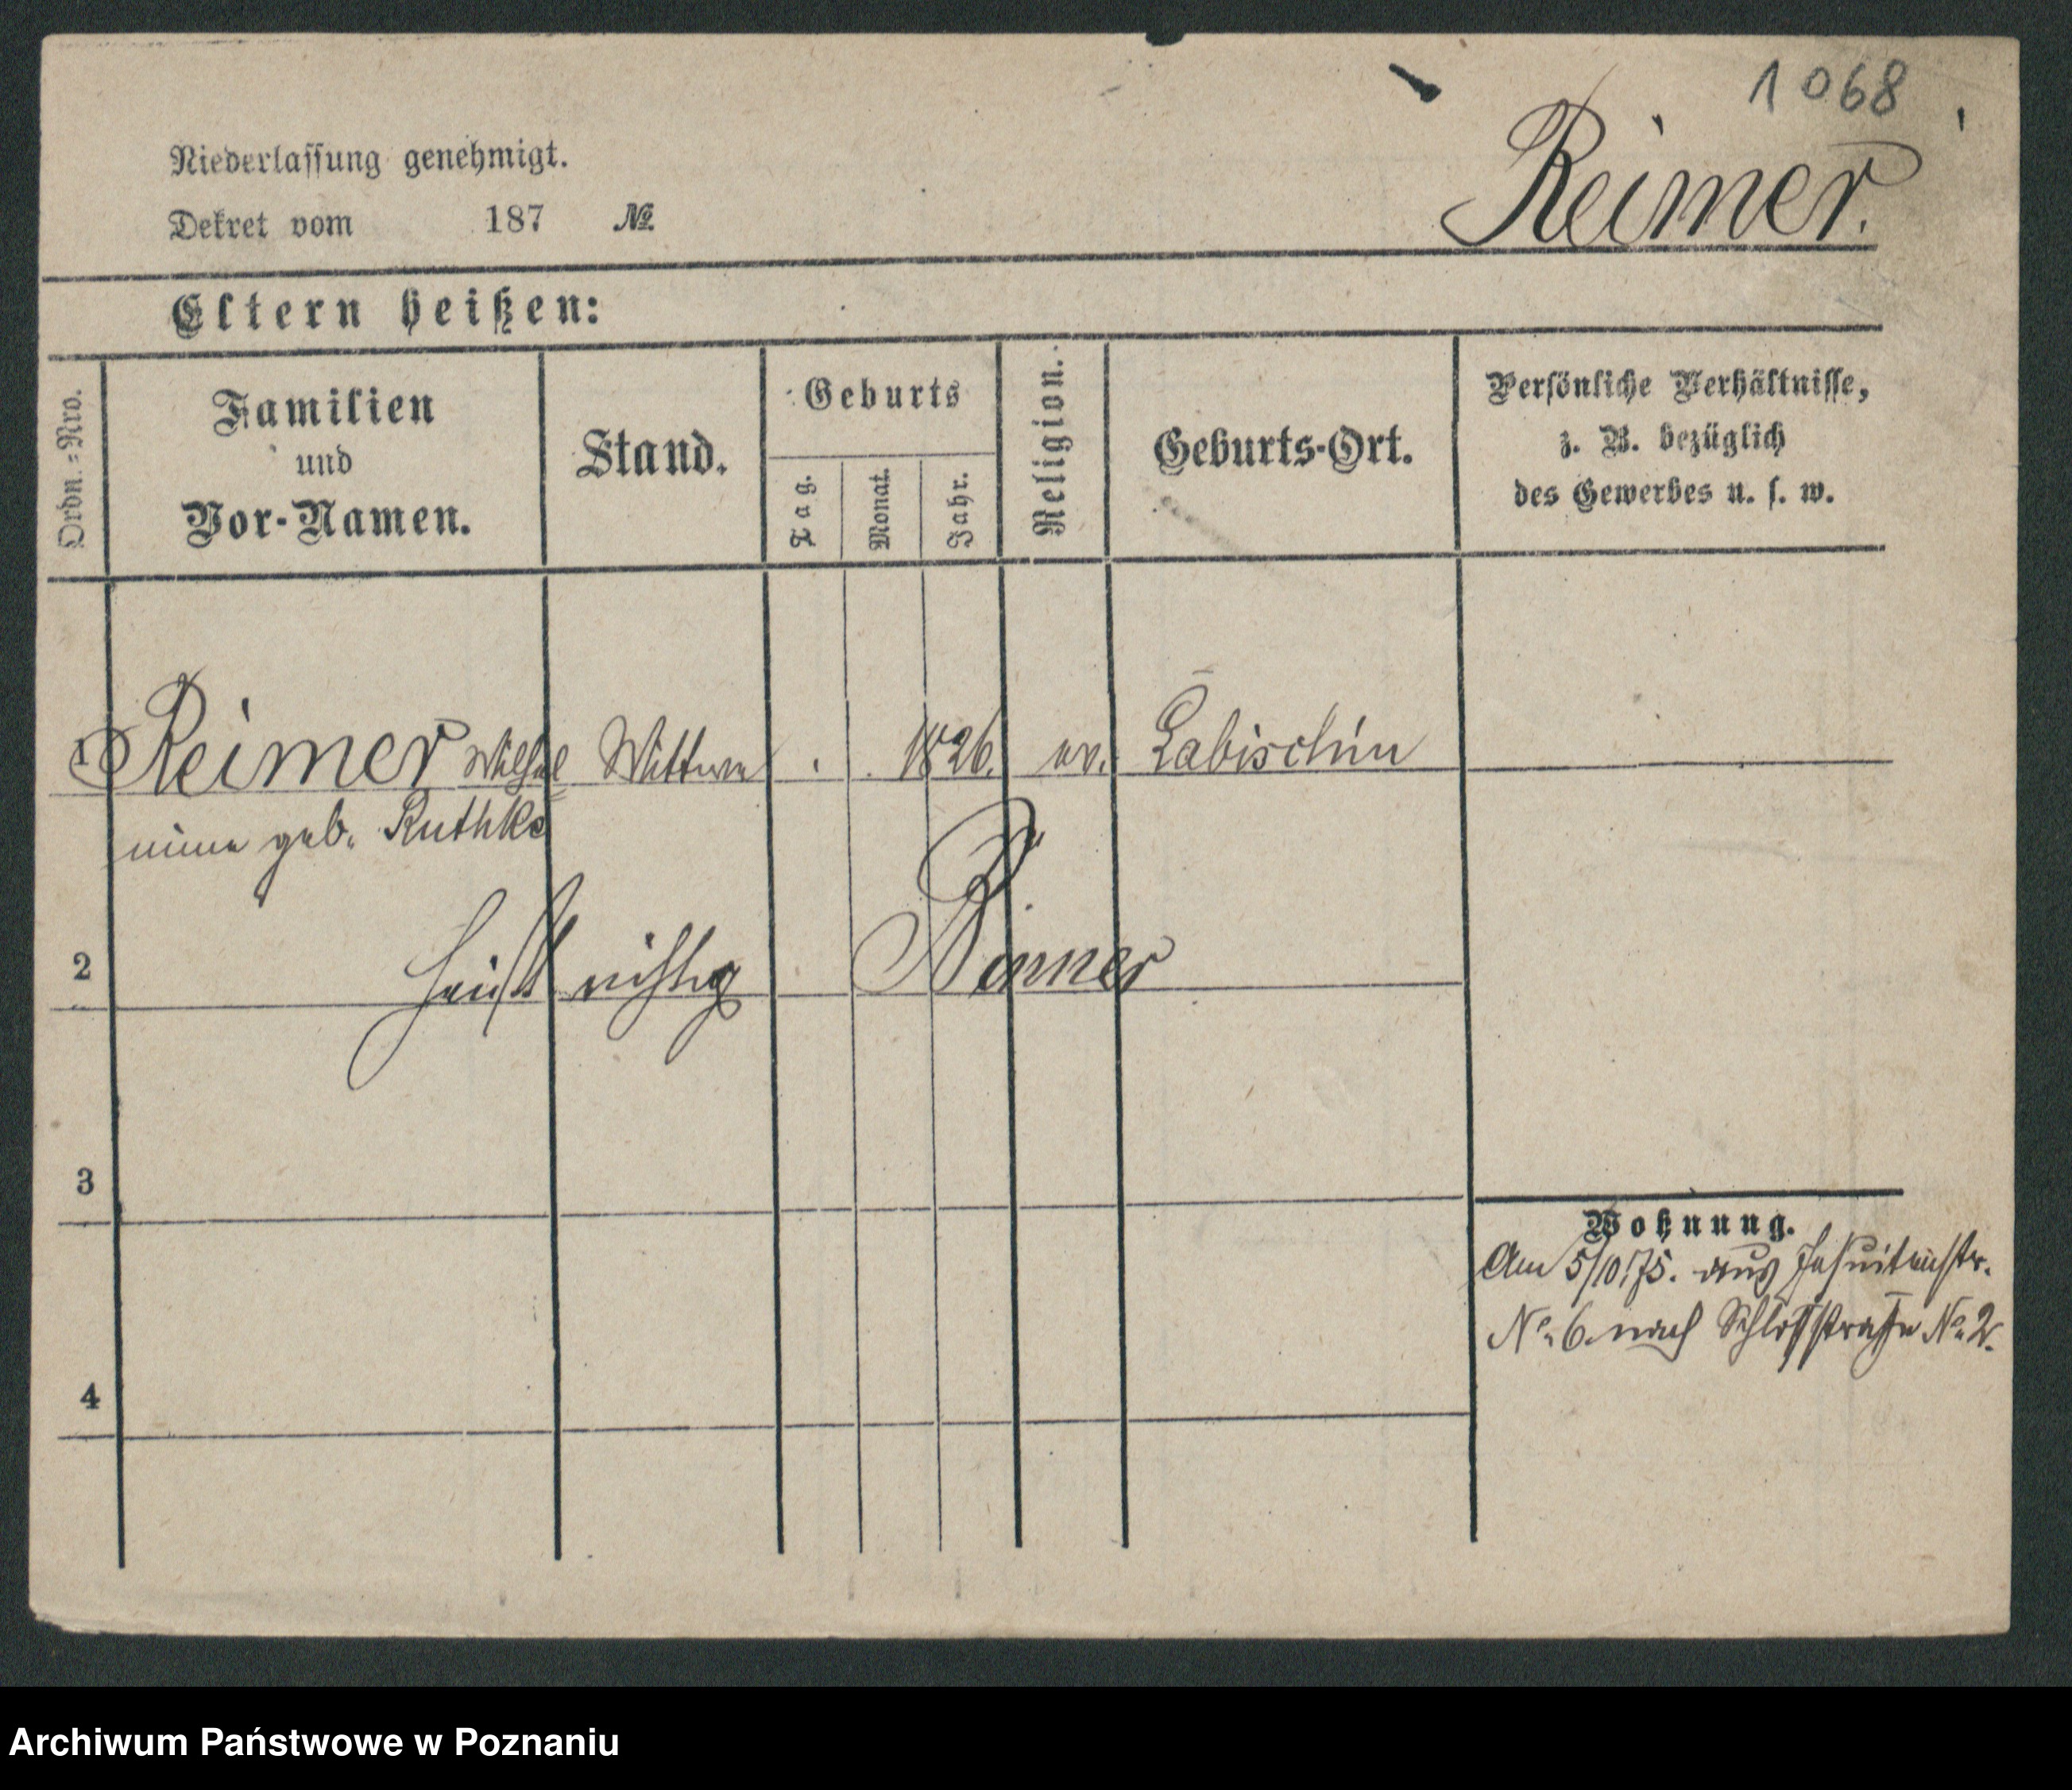 1068
Reimer.
Niederlassung genehmigt.
Dekret vom 187 №
Eltern heißen:
Ordn.=Nro.
Familien
und
Vor-Namen.
Stand.
Geburts
Tag.
Monat.
Jahr.
Religion.
Geburts-Ort.
Persönliche Verhältnisse,
z. B. bezüglich
des Gewerbes u. s. w.
1 Reimer Wilhel Wittwe . . 1826. ev. Labischin
mine geb. Ruthke
2 heißt richtig Rimer
3
4
Wohnung.
Am 5/10.75. aus Jesuitenstr.
No. 6. nach Schloßstraße No. 2.
Archiwum Państwowe w Poznaniu